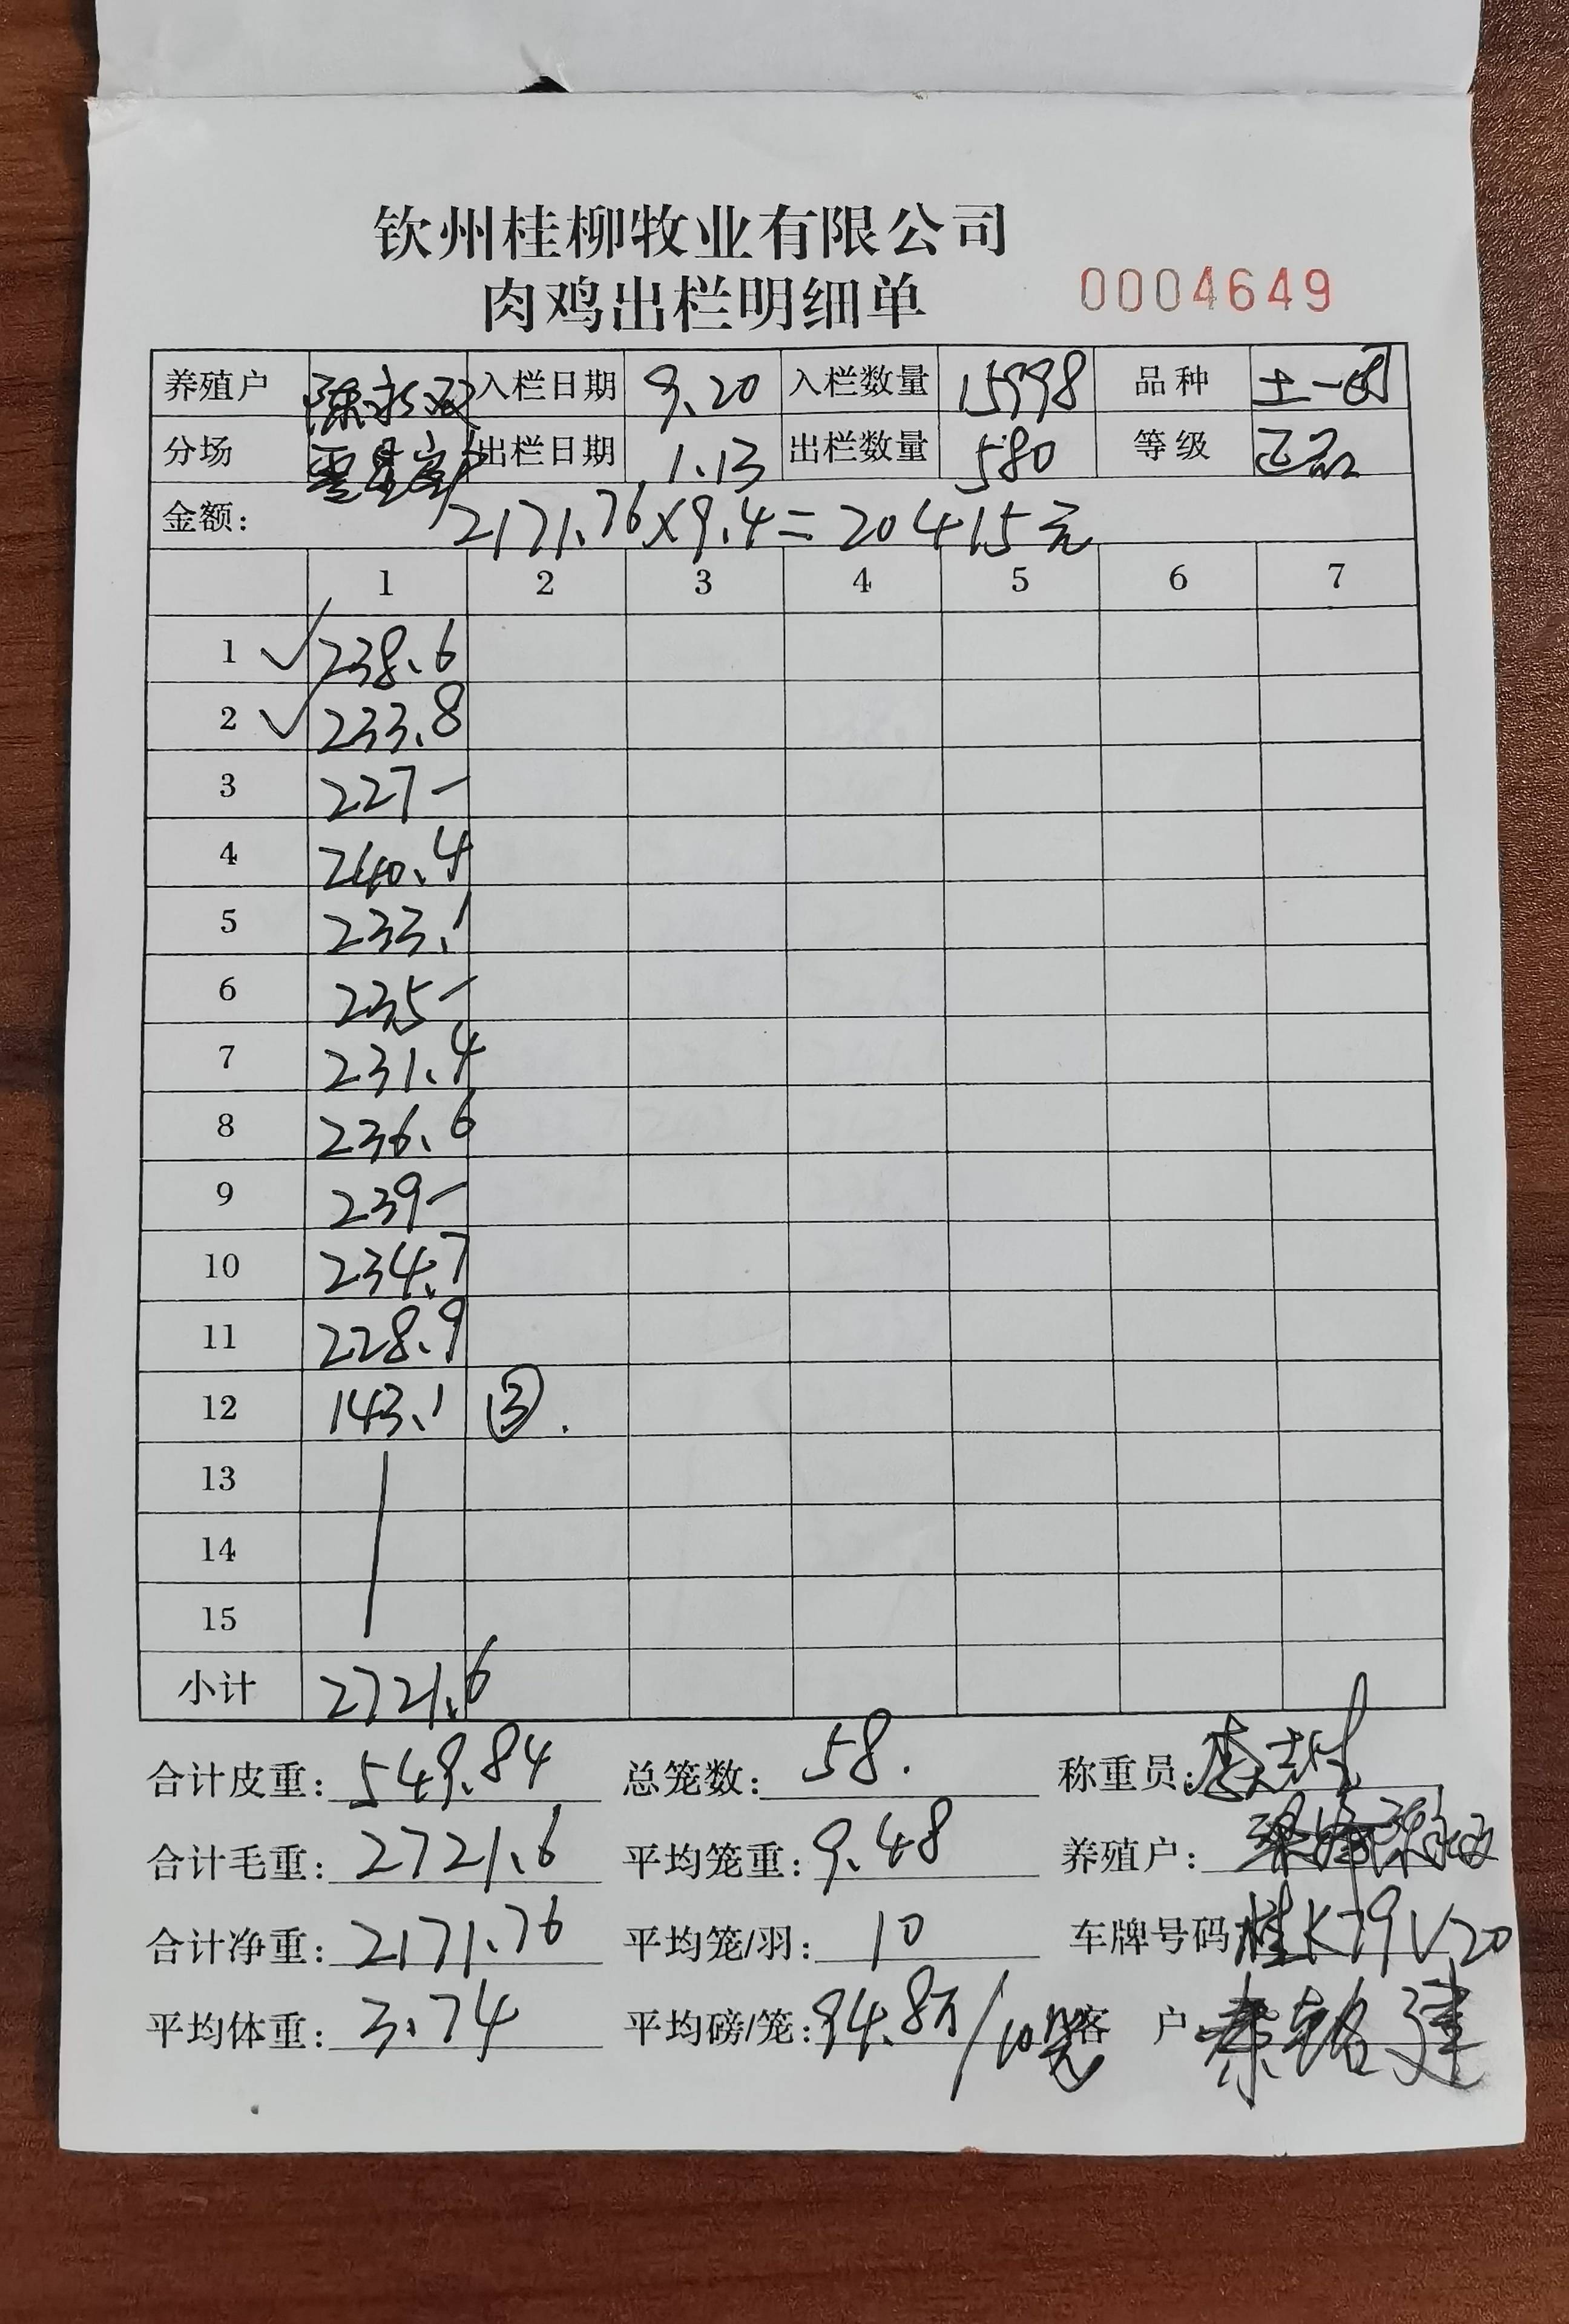 钦州桂柳牧业有限公司
肉鸡出栏明细单 0004649
养殖户 入栏日期 9.20 入栏数量 15998 品种 土一
分场 出栏日期 1.13 出栏数量 580 等级 正品
金额: 2171.76×9.4=20415元
1 2 3 4 5 6 7
1 ✓ 238.6
2 ✓ 233.8
3 227-
4 240.4
5 233.1
6 235-
7 231.4
8 236.6
9 239-
10 234.7
11 228.9
12 143.1 ③.
13
14
15
小计 2721.6
合计皮重: 549.84 总笼数: 58. 称重员:
合计毛重: 2721.6 平均笼重: 9.48 养殖户:
合计净重: 2171.76 平均笼/羽: 10 车牌号码 桂K79V20
平均体重: 3.74 平均磅/笼: 94.8 客 户